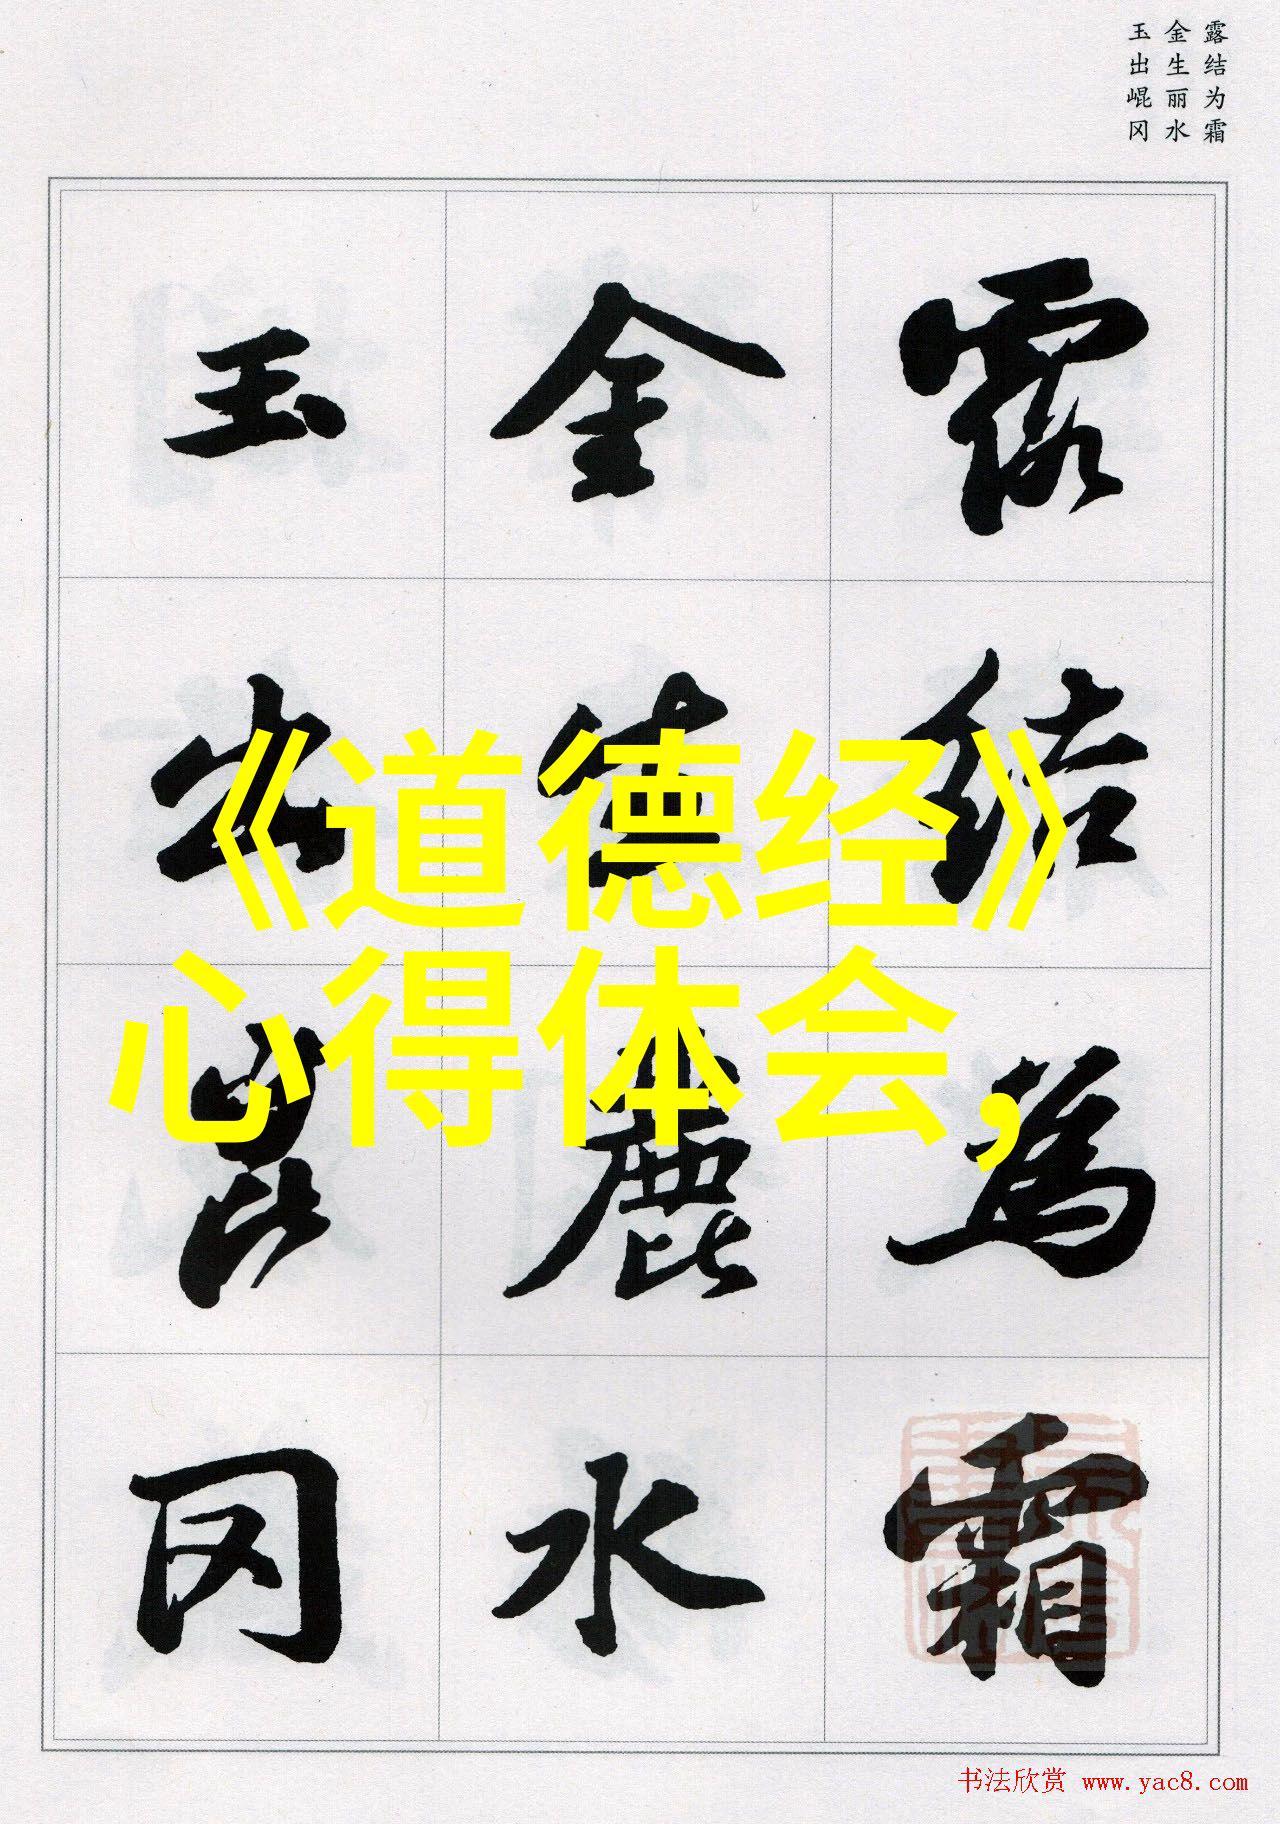 露结为霜
金生丽水
玉出崐冈
露結為霜
金生麗水
玉出崑冈
《道德经》
心得体会,
书法欣赏 www.yac8.com